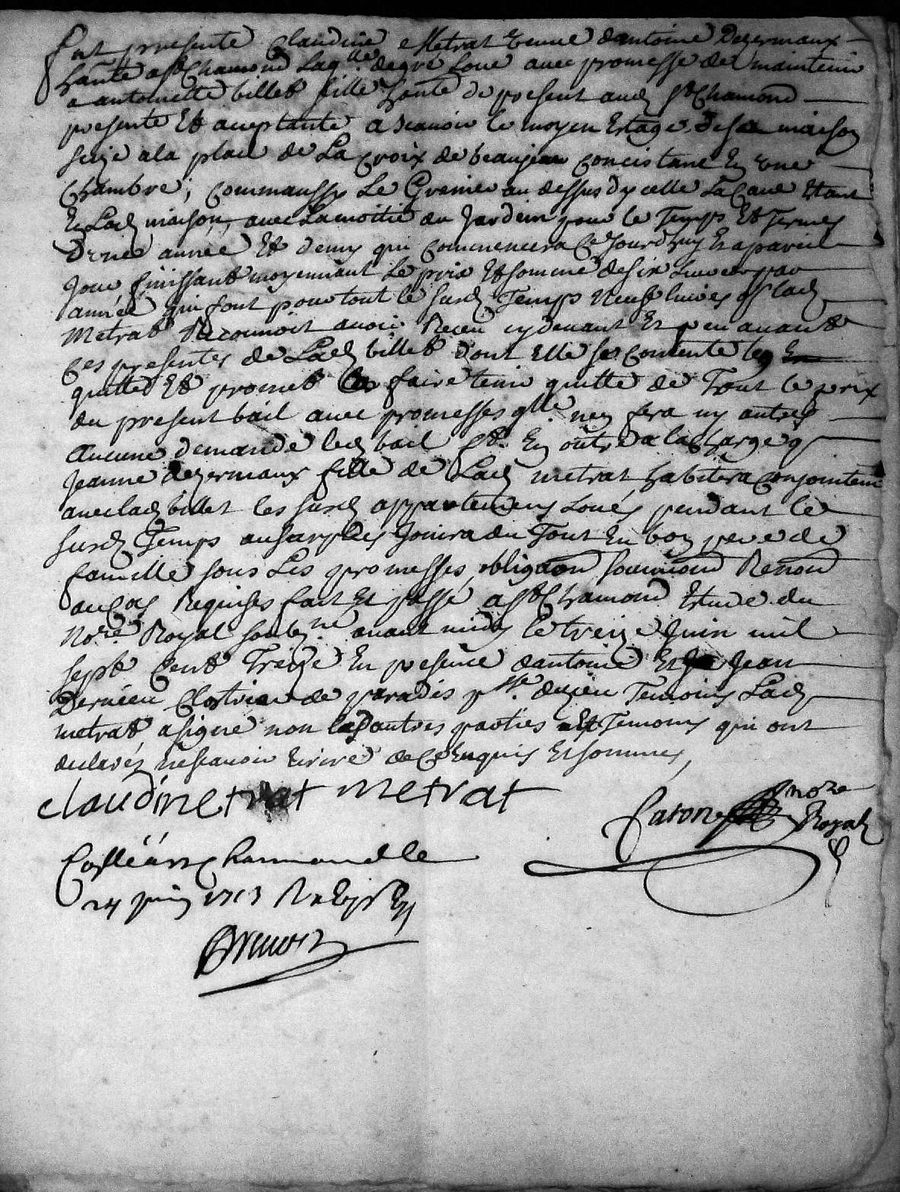 fut presente Claudine Metrat veuve dantoine dezermaux
hante a St Chamond Laqlle de gré Loue avec promesse de maintenir
a antoinette billet fille hante de present aud St Chamond
presente Et aceptante a scavoir le moyen Estage de sa maison
size a la place de La Croix de beaujeu concistant En vne
chambre; comm aussy Le Grenier au dessus dycelle La Cave Estant
En Lad maison, avec La moitié du Jardin pour le Temps Et Terme
d'vne année Et demy qui commencera Ce Jourdhuy En a pareil
Jour finissant moyennant Le prix Et somme de six Livres par
année qui font pour tout le susd Temps neuf livres q Lad
Metrat Reconnoit avoir Receu cy devant Et peu avant
Ces presentes de Lad billet dont Elle se contente les En
quitte Et promet faire tenir quitte de Tout le prix
du present bail avec promesses qlle ney fera ny autres
aucune demande led bail En outre a la charge q
Jeanne dezermaux fille de Lad metrat habitera conjointem
avec lad billet les susd appartemens Loués pendant le
susd Temps Jouira du Tout En bon pere de
famille sous Les promesses, obligaon soumissions Renon
au cas Requises fait Et passé a St Chamond Estude du
Nore Royal soubzne avant midy le treize Juin mil
sept Cent Treize En presence dantoine Et Jean
de paradis Temoins Lad
metrat a signé non les autres parties Et Temoins qui ont
declarés ne scavoir Ecrire de Ce Enquis Et sommés,
claudine trat metrat
Caron nore
Royal
Collé a St Chamond le
24 juin 1713 R